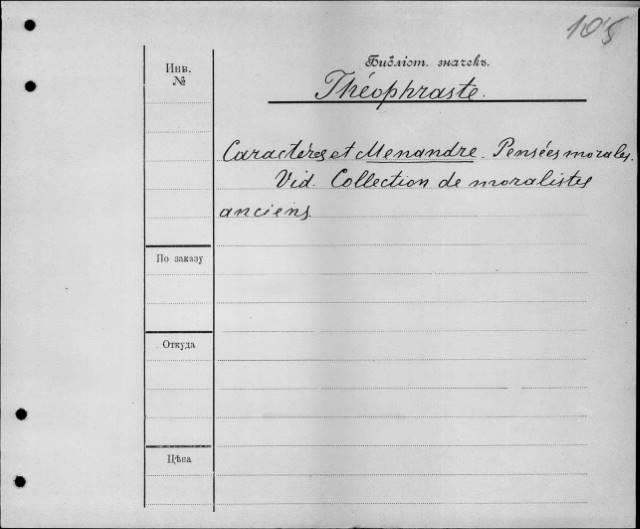 105
Библіот. значекъ.
Инв.
№
Théophraste.
Caractéres et Menandre. Pensées morales.
Vid. Collection de moralistes
anciens.
По заказу
Откуда
Цѣна